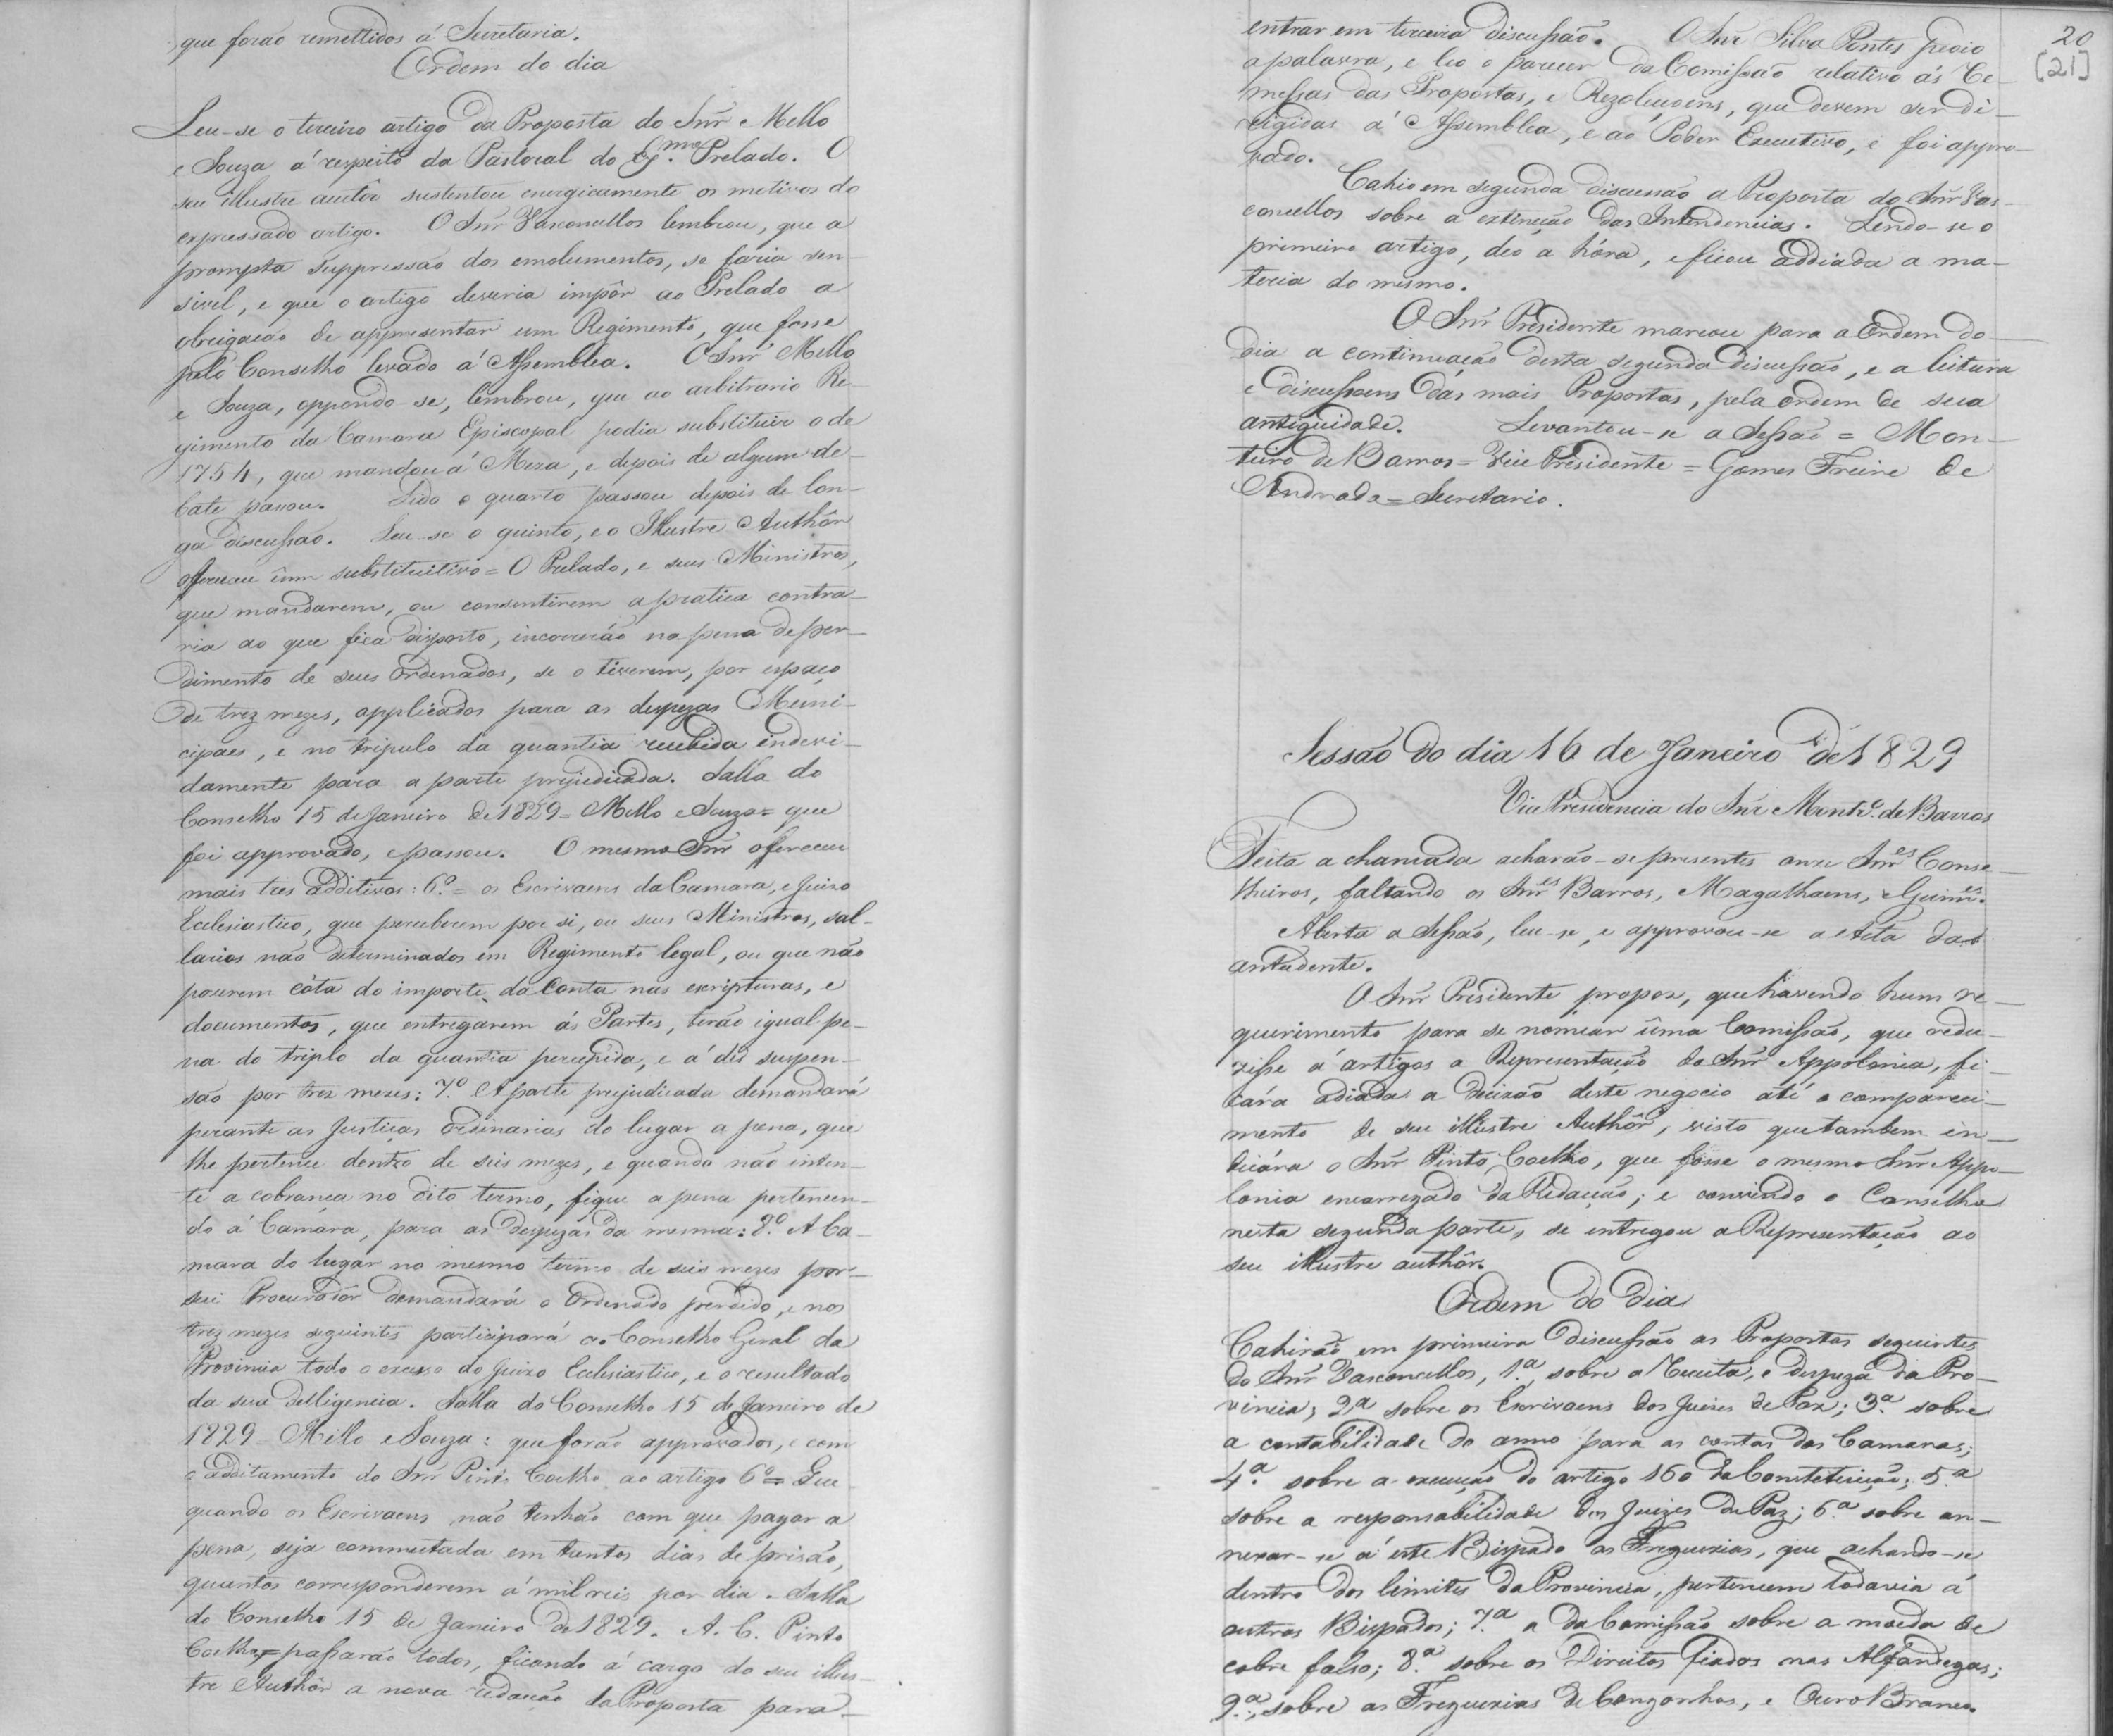 que forão remettidos á Secretaria.
Ordem do dia
Leu-se o terceiro artigo da Proposta do Snr̃ Mello
e Souza á respeito da Pastoral do Ex.mo Prelado. O
seu illustre autôr sustentou energicamente os motivos do
expressado artigo. O Snr̃ Vasconcellos lembrou, que a
prompta suppressão dos emolumentos, se faria sen-
sivel, e que o artigo deveria impôr ao Prelado a
obrigação de appresentar um Regimento, que fosse
pelo Conselho levado á Assemblea. O Snr̃ Mello
e Souza, oppondo-se, lembrou, que ao arbitrario Re-
gimento da Camara Episcopal podia substituir o de
1754, que mandou á Meza, e depois de algum de-
bate passou. Lido o quarto passou depois de lon-
ga discussão. Leu-se o quinto, e o Illustre Authôr
offereceu ûm substituitivo = O Prelado, e seus Ministros,
que mandarem, ou consentirem a pratica contra-
ria ao que fica disposto, incorrerão na pena de per-
dimento de seus ordenados, se o tiverem, por espaço
de trez mezes, applicados para as despezas Muni-
cipaes, e no tripulo da quantia recebida indevi-
damente para a parte prejudicada. Salla do
Conselho 15 de Janeiro de 1829 = Mello e Souza = que
foi approvado, e passou. O mesmo Snr̃ offereceu
mais tres additivos: 6.º = os Escrivaens da Camara, e Juizo
Eclesiastico, que perceberem por si, ou seus Ministros, sal-
larios não determinados em Regimento legal, ou que não
pozerem cóta do importe da Conta nas escripturas, e
documentos, que entregarem ás Partes, terão igual pe-
na do triplo da quantia percepida, e á de suspen-
são por trez mezes: 7.º A parte prejudicada demandará
perante as Justiças Ordinarias do lugar a pena, que
lhe pertence dentro de seis mezes, e quando não inten-
te a cobrança no dito termo, fique a pena pertencen-
do á Camára, para as despezas da mesma: 8.º A Ca-
mara do lugar no mesmo termo de seis mezes por
seu Procuradôr demandará o Ordenado perdido, e nos
trez mezes seguintes participará ao Conselho Geral da
Provincia todo o excesso do Juizo Ecclesiastico, e o resultado
da sua delligencia. Salla do Conselho 15 de Janeiro de
1829 = Mello e Souza: que forão approvados, e com
o additamento do Snr̃ Pinto Coelho ao artigo 6º = Que
quando os Escrivaens não tenhão com que pagar a
pena, seja commutada em tantos dias de prisão,
quantos corresponderem á mil reis por dia. Salla
do Conselho 15 de Janeiro de 1829. A. C. Pinto
Coelho = passarão todos, ficando á cargo do seu illus-
tre Authôr a nova redação da Proposta para
20
[21]
entrar em terceira discussão. O Snr̃ Silva Pontes pedio
a palavra, e leo o parecer da Comissão relativo ás Re-
messas das Propostas, e Rezoluçoens, que devem ser di-
rigidas á Assemblea, e ao Poder Executivo, e foi appro-
vado.
Cahio em segunda discussão a Proposta do Snr̃ Vas-
concellos sobre a extinção das Intendencias. Lendo-se o
primeiro artigo, deo a hóra, e ficou addiada a ma-
teria do mesmo.
O Snr̃ Presidente marcou para a Ordem do
dia a continuação desta segunda discussão, e a leitura
e discussoens dás mais Propostas, pela ordem de sua
antiguidade. Levantou-se a Sessão = Mon-
teiro de Barros = Vice Presidente = Gomes Freire de
Andrada = Secretario.
Sessão do dia 16 de Janeiro de 1829
Vice Presidencia do Snr̃ Montr.º de Barros
Feita a chamada acharão-se presentes onze Snr̃es Conse-
lheiros, faltando os Snr̃es Barros, Magalhaens, e Guim.es
Aberta a Sessão, leu-se, e approvou-se a Acta da
antecedente.
O Snr̃ Presidente propoz, que havendo hum re-
querimento para se nomear ûma Comissão, que redu-
zisse á artigos a Representação do Snr̃ Appolonia, fi-
cára adiada a decizão deste negocio até o compareci-
mento de seu illustre Authôr, visto que tambem in-
dicára o Snr̃ Pinto Coelho, que fôsse o mesmo Snr̃ Appo-
lonia encarregado da Redacção; e convindo o Conselho
nesta segunda parte, se entregou a Representação ao
seu illustre authôr.
Ordem do dia
Cahirão em primeira discussão as Propostas seguintes
do Snr̃ Vasconcellos, 1.ª, sobre a Receita, e despeza da Pro-
vincia; 2.ª sobre os Escrivaens dos Juizes de Paz; 3.ª sobre
a contabilidade do anno para as contas das Camaras;
4.ª sobre a execução do artigo 160 da Constetuição; 5.ª
sobre a responsabilidade dos Juizes de Paz; 6.ª sobre an-
nexar-se á este Bispado as Freguezias, que achando-se
dentro dos limites da Provincia, pertencem todavia á
outros Bispados; 7.ª a da Comissão sobre a moeda de
cobre falso; 8.ª sobre os Direitos fiados nas Alfandegas;
9.ª, sobre as Freguezias de Congonhas, e Ouro Branco.